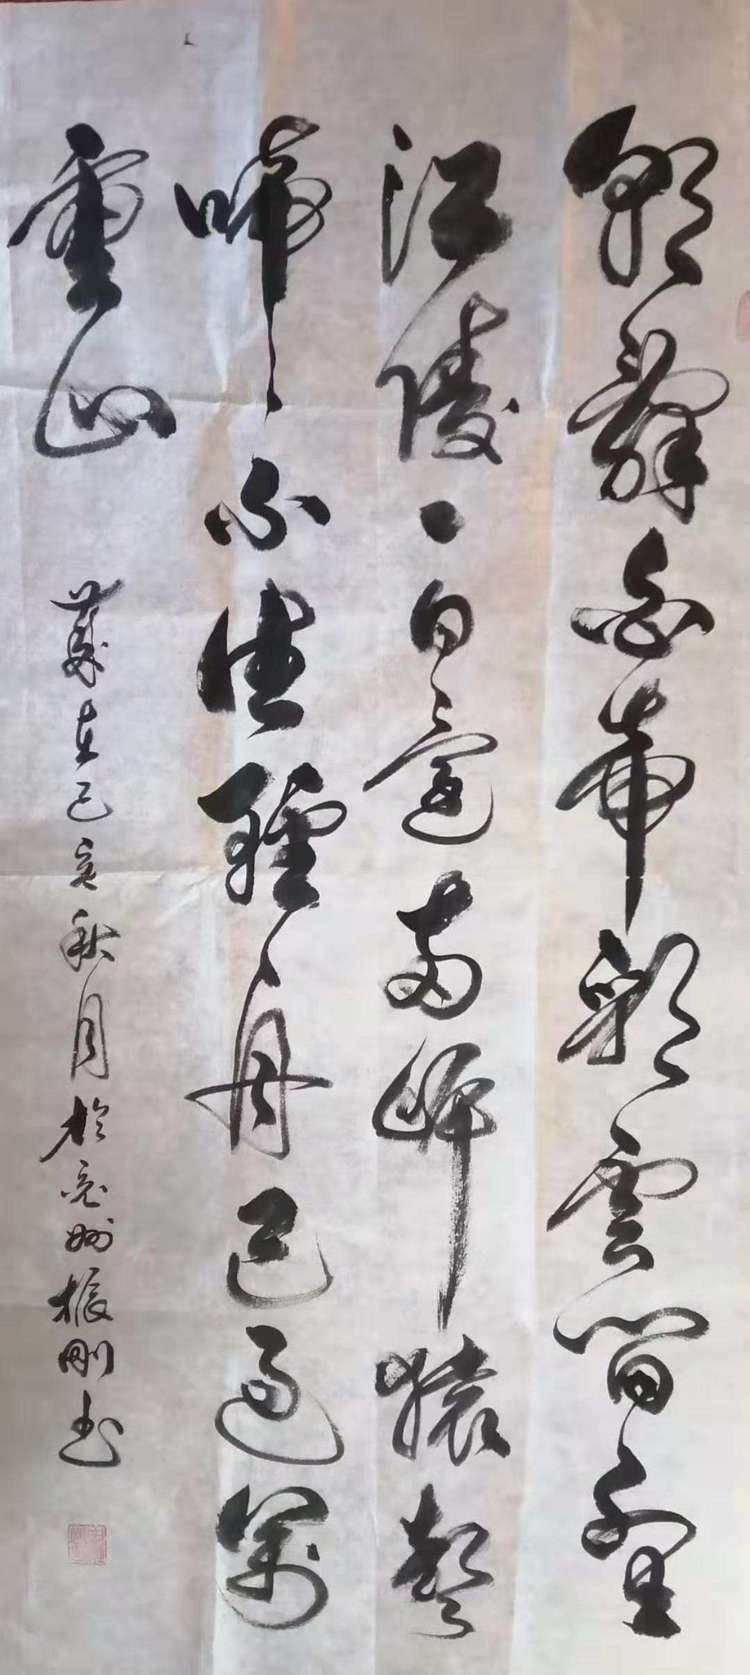 朝辭白帝彩雲間千里
江陵一日還兩岸猿聲
啼不住輕舟已過萬
重山
歲在己亥秋月於亳州振剛书